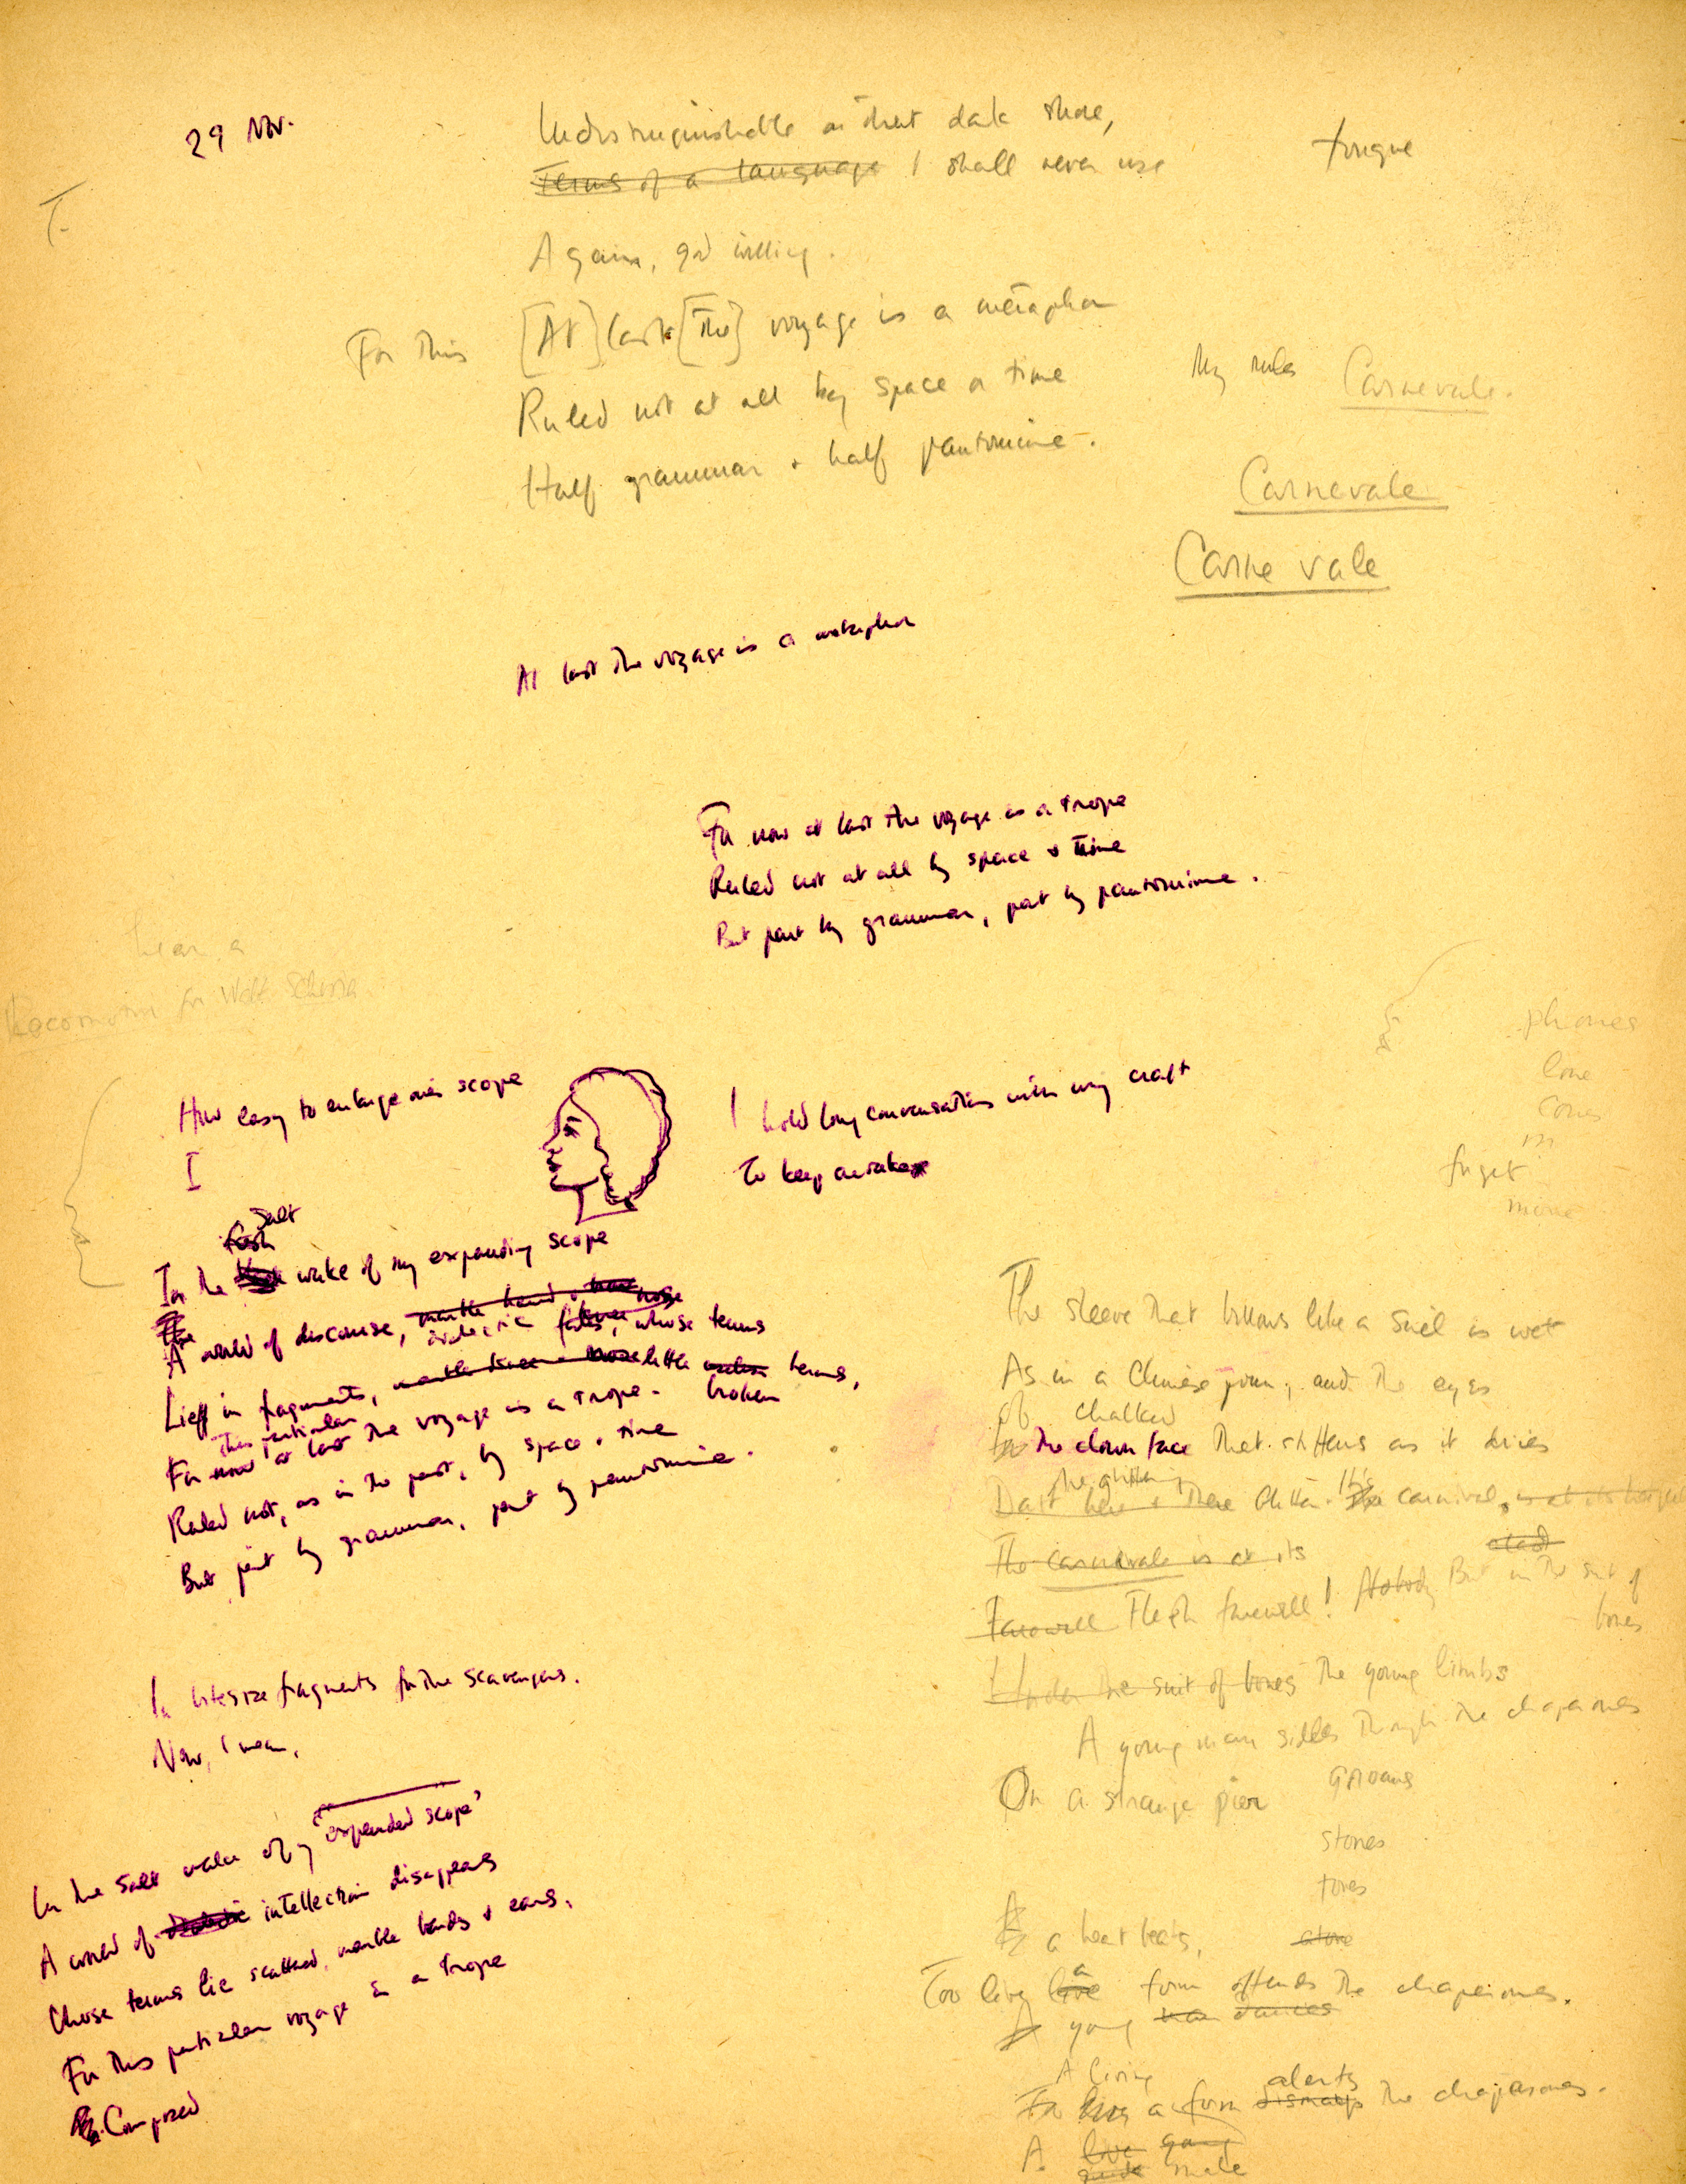 29 Nov.
Indistinguishable on that dark shore,
tongue
Terms of a language I shall never use
T.
Again, god willing.
For this [At] last [the] voyage is a metaphor
My rules
Carnevale.
Ruled not at all by space or time
Half grammar + half pantomime.
Carnevale
Carne vale
At last the voyage is a metaphor
For now at last the voyage is a trope
Ruled not at all by space + time
But part by grammar, part by pantomime.
hear a
for Welt
phones
lone
cones
in
forget
move
How easy to enlarge one's scope
I
I hold long conversations with my craft
To keep awake
Salt
In the wake of my expanding scope
The
A world of discourse, marble hand + nose
dialectic, whose terms
Lie in fragments, marble little terms,
broken
This particular
For now at last the voyage is a trope.
Ruled not, as in the past, by space + time
But part by grammar, part by pantomime.
The sleeve that billows like a sail is wet
As in a Chinese poem, and the eyes
Of chalked
the clown face that stiffens as it dries
the glittering
Dart here + there Glitter. It's the carnival, is at its height
The carnevale is at its
Farewell Flesh farewell! Nobody But in the suit of
bones
Under the suit of bones the young limbs
A young man sidles through the chaperones
On a strange pier
groans
stones
tones
alone
In bitesize fragments for the scavengers.
Now, I mean,
In the salt wake of my "expanded scope"
A world of intellection disappears
Whose terms lie scattered, marble hands + ears,
For this particular voyage is a trope
Composed
A
a heart beats,
Too live a form offends the chaperones.
A young man dances
A living
alerts
For lives a form dismays the chaperones.
A live young
male